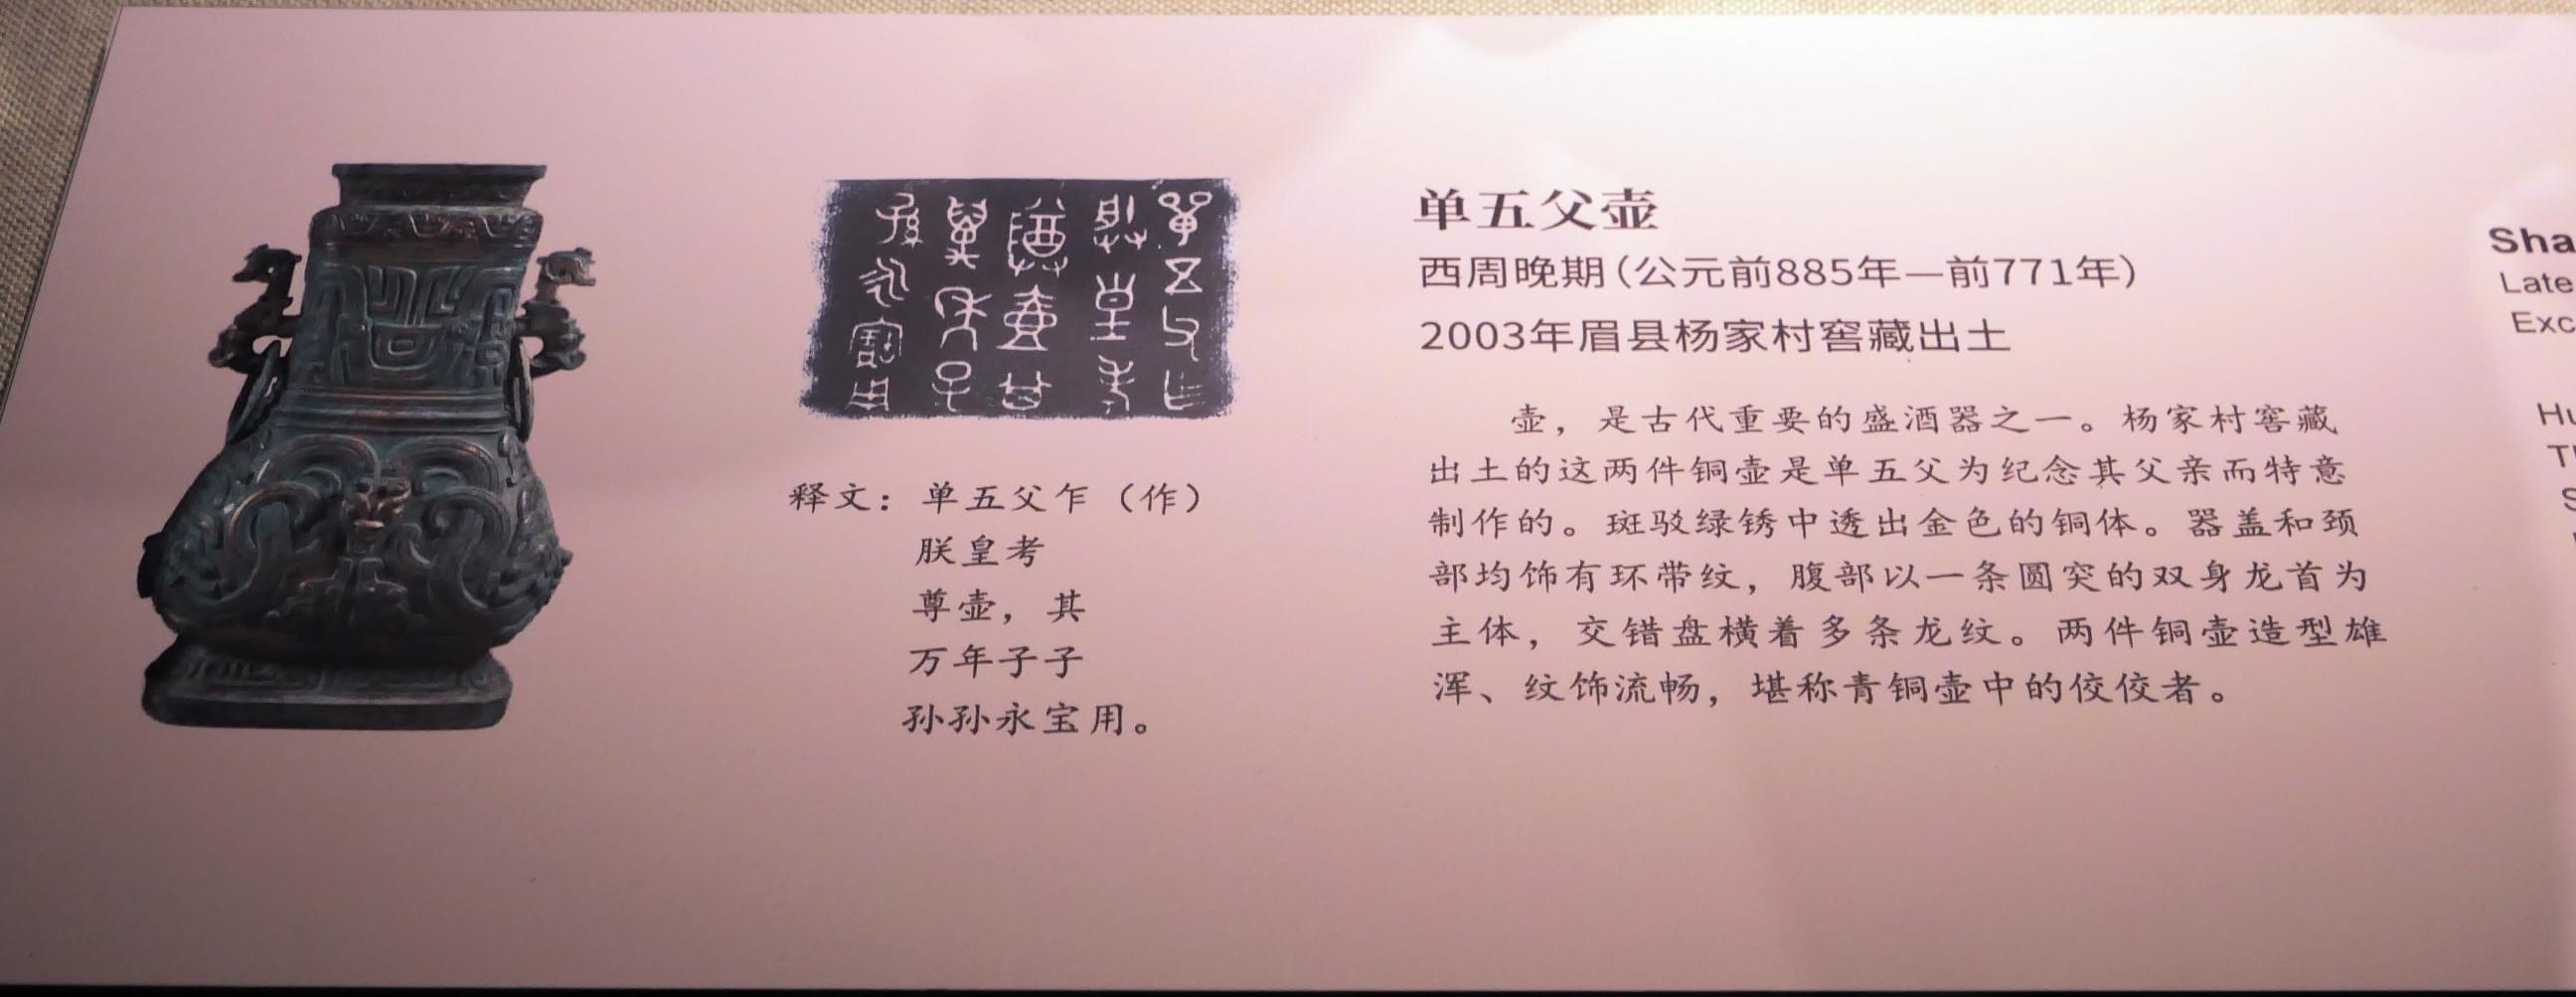 单五父乍(作)
朕皇考
尊壶其
万年子子
孙孙永宝用
释文：单五父乍（作）
朕皇考
尊壶，其
万年子子
孙孙永宝用。
单五父壶
西周晚期（公元前885年—前771年）
2003年眉县杨家村窖藏出土
壶，是古代重要的盛酒器之一。杨家村窖藏
出土的这两件铜壶是单五父为纪念其父亲而特意
制作的。斑驳绿锈中透出金色的铜体。器盖和颈
部均饰有环带纹，腹部以一条圆突的双身龙首为
主体，交错盘横着多条龙纹。两件铜壶造型雄
浑、纹饰流畅，堪称青铜壶中的佼佼者。
Sha
Late
Exc
Hu